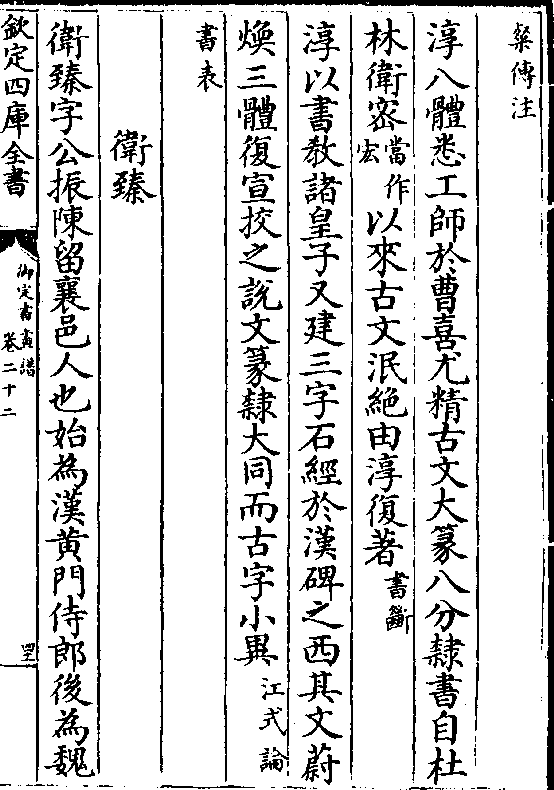 粲傳注
淳八體悉工師於曹喜尤精古文大篆八分隸書自杜
林衛宻當作宏以來古文泯絶由淳復著書斷
淳以書教諸皇子又建三字石經於漢碑之西其文蔚
煥三體復宣挍之說文篆隸大同而古字小異江式論
書表
衛臻
衛臻字公振陳留襄邑人也始為漢黄門侍郎後為魏
欽定四庫全書
御定書畫譜
卷二十二